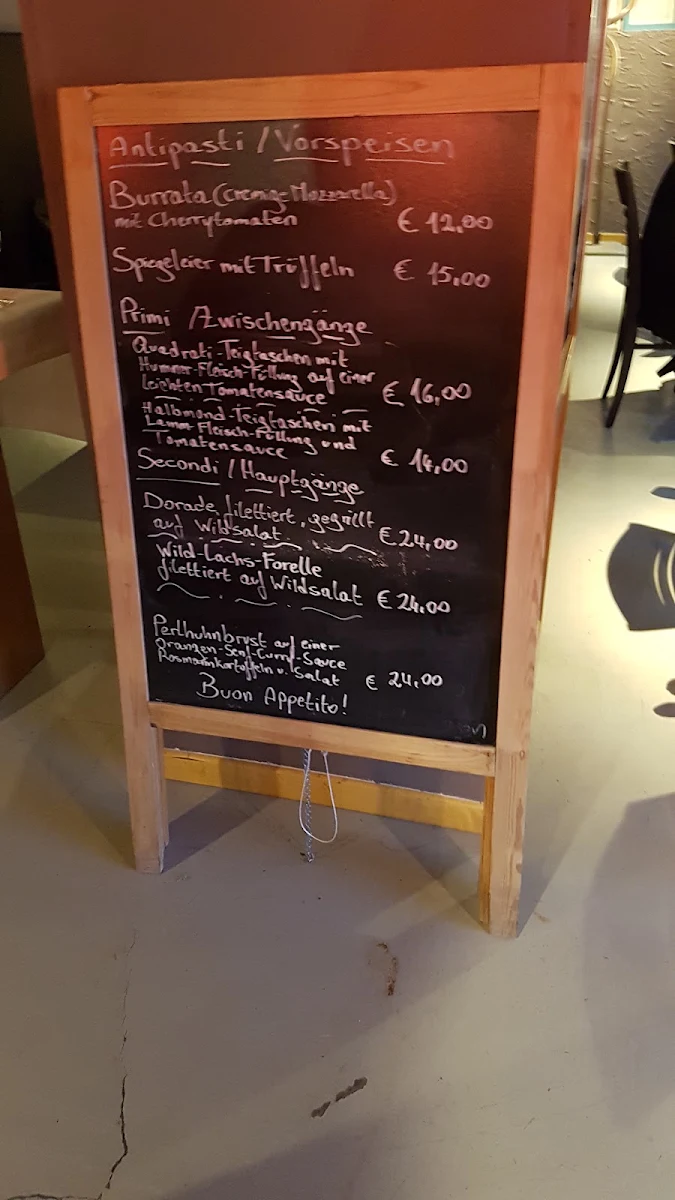 Antipasti / Vorspeisen
Burrata (cremige Mozzarella)
mit Cherrytomaten € 12,00
Spiegeleier mit Trüffeln € 15,00
Primi / Zwischengänge
Quadrati-Teigtaschen mit
Hummer-Fleisch-Füllung auf einer
leichten Tomatensauce € 16,00
Halbmond-Teigtaschen mit
Lamm-Fleisch-Füllung und
Tomatensauce € 14,00
Secondi / Hauptgänge
Dorade, filettiert, gegrillt
auf Wildsalat € 24,00
Wild-Lachs-Forelle
filettiert auf Wildsalat € 24,00
Perlhuhnbrust auf einer
Orangen-Senf-Curry-Sauce
Rosmarinkartoffeln u. Salat € 24,00
Buon Appetito!